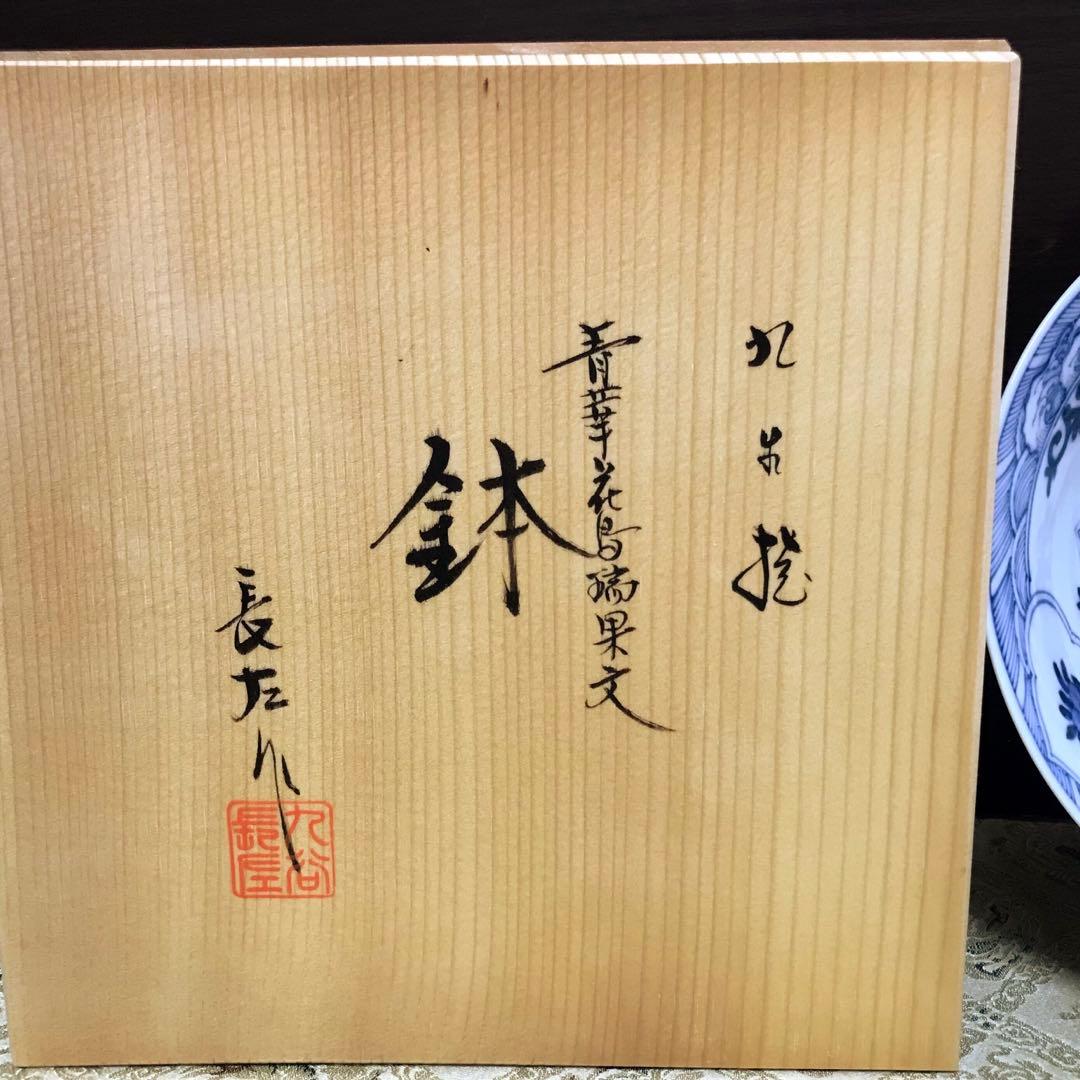 九谷
青華花鳥瑞果文
鉢
長左作
九谷
長左